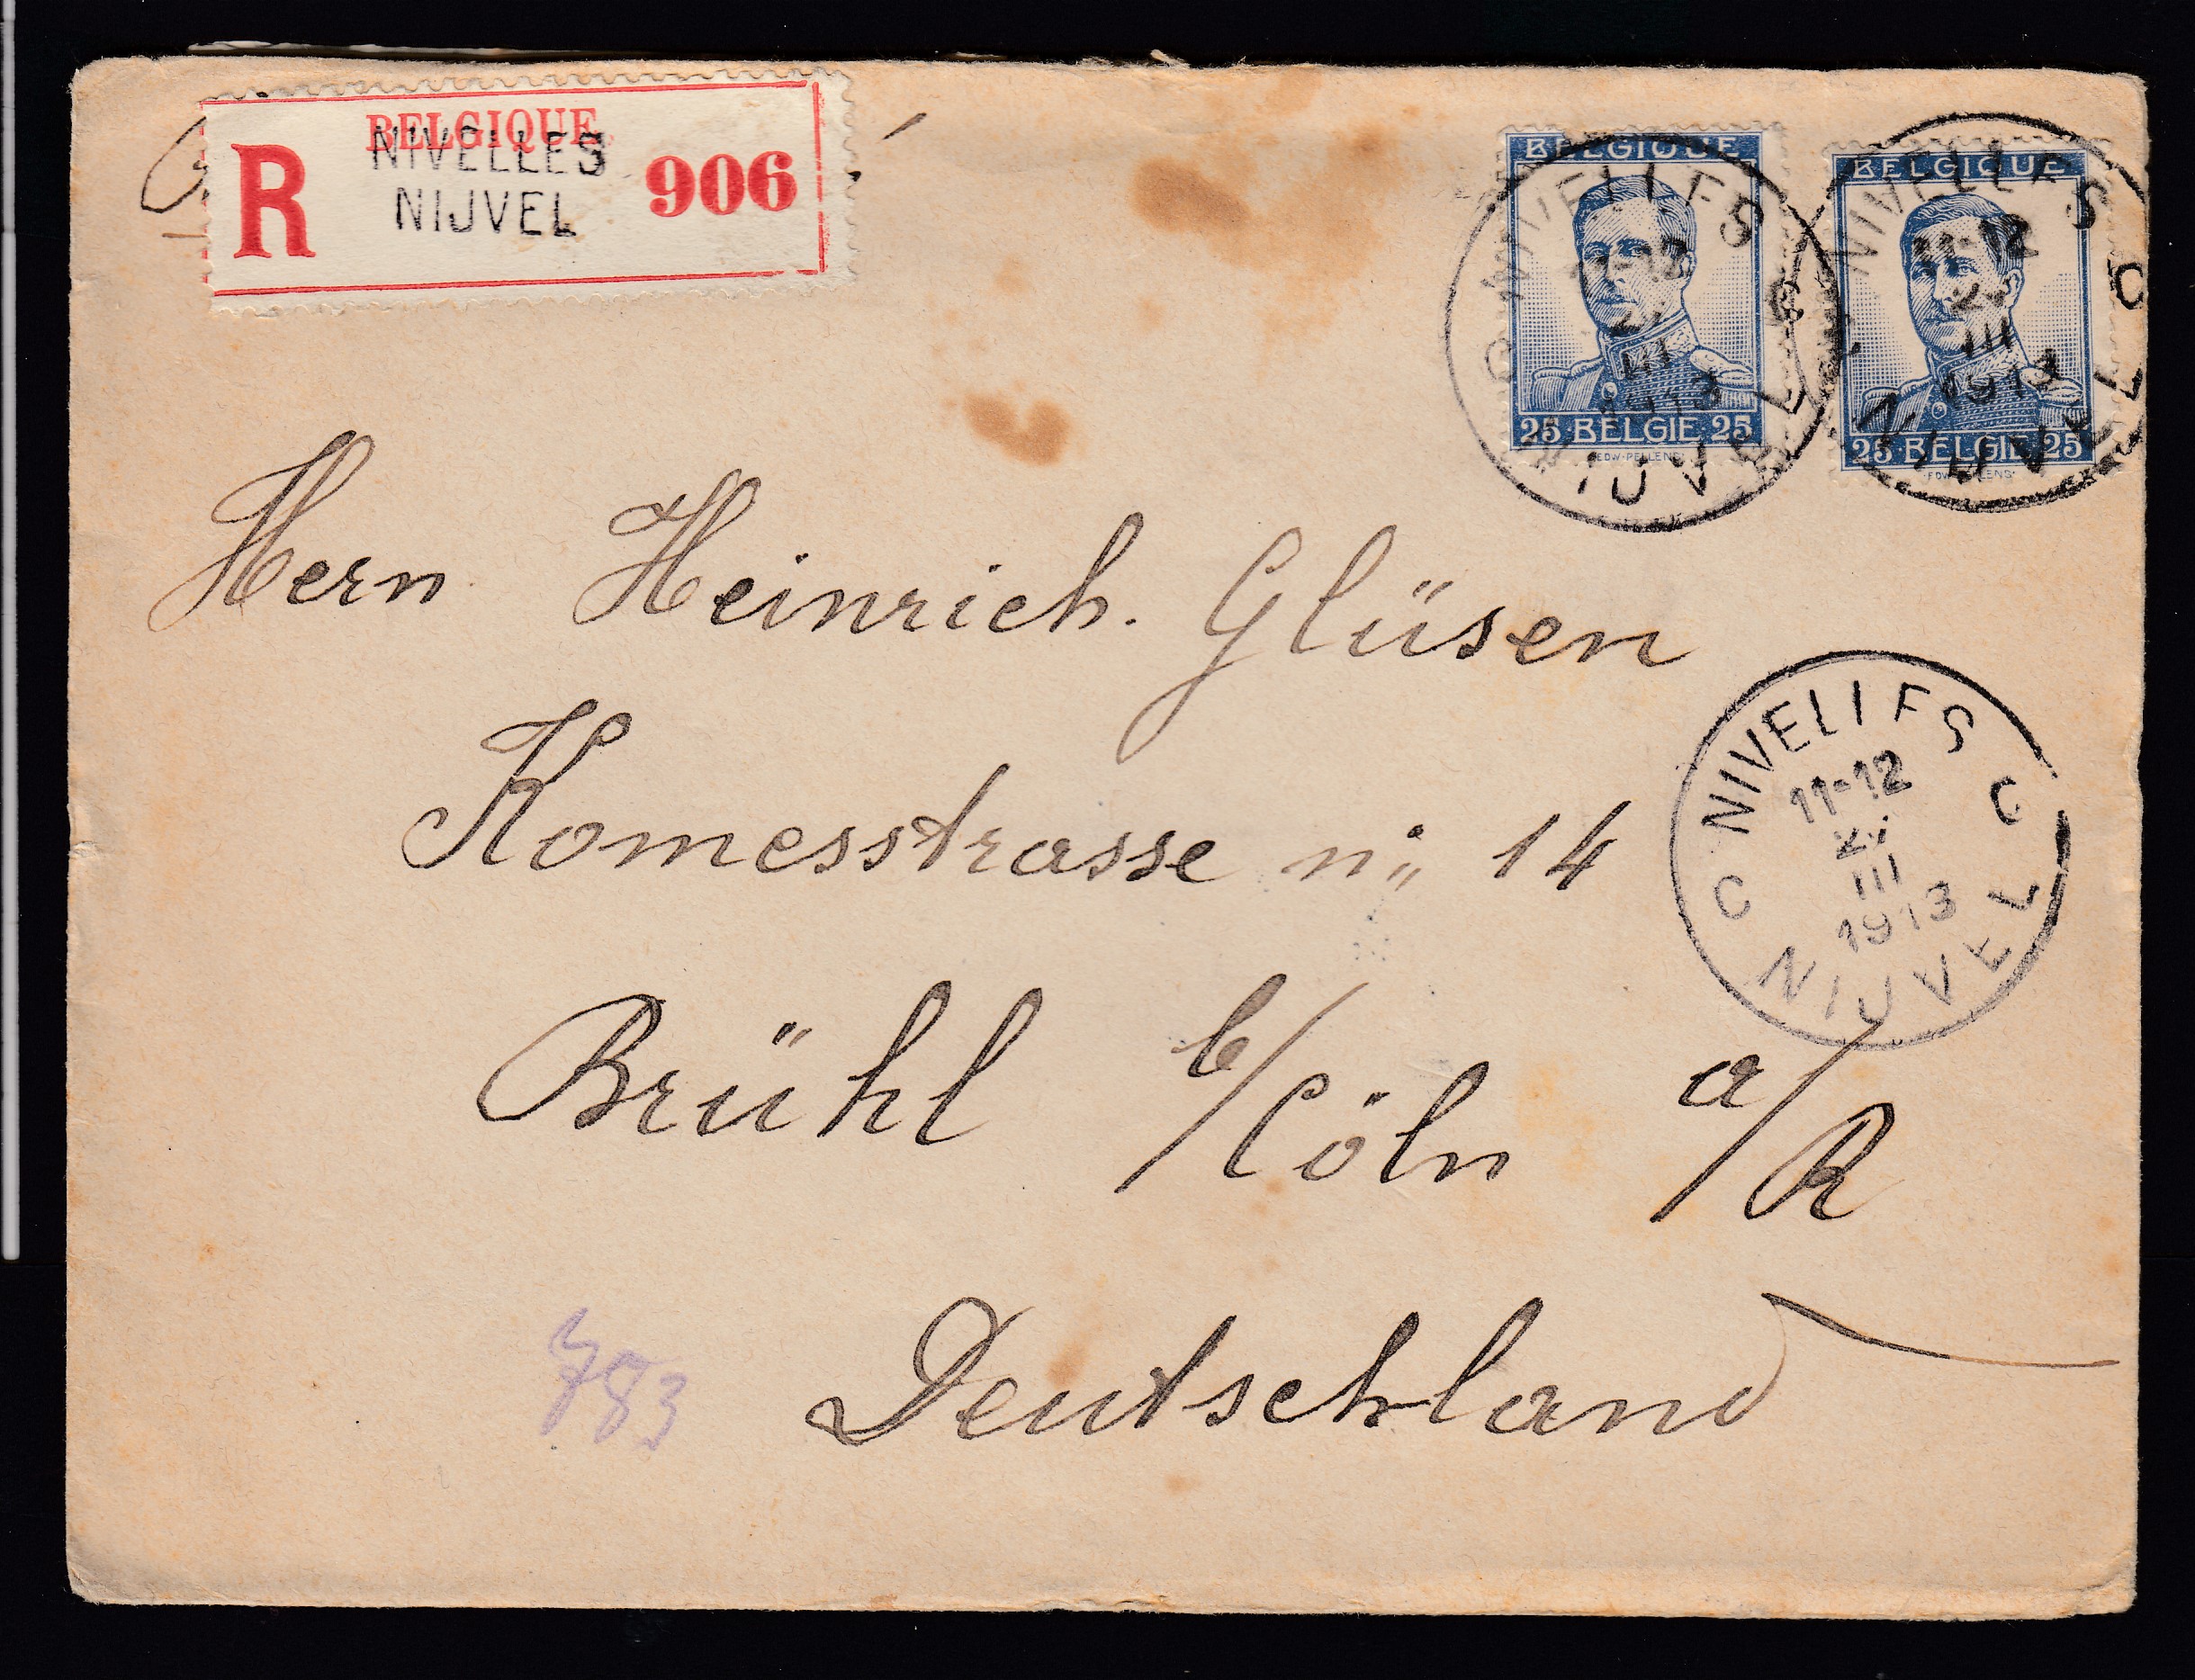 BELGIQUE
R
NIVELLES
906
NIJVEL
BELGIQUE
25 BELGIE 25
EDW·PELLENS
BELGIQUE
25 BELGIE 25
NIVELLES
11-12
III
1913
C
NIJVEL
NIVELLES
11-12
III
1913
C
NIJVEL
Hern Heinrich. Glüsen
Komesstrasse n° 14
Brühl b/Cöln a/R
Deutschland
NIVELLES
11-12
III
1913
C C
NIJVEL
783